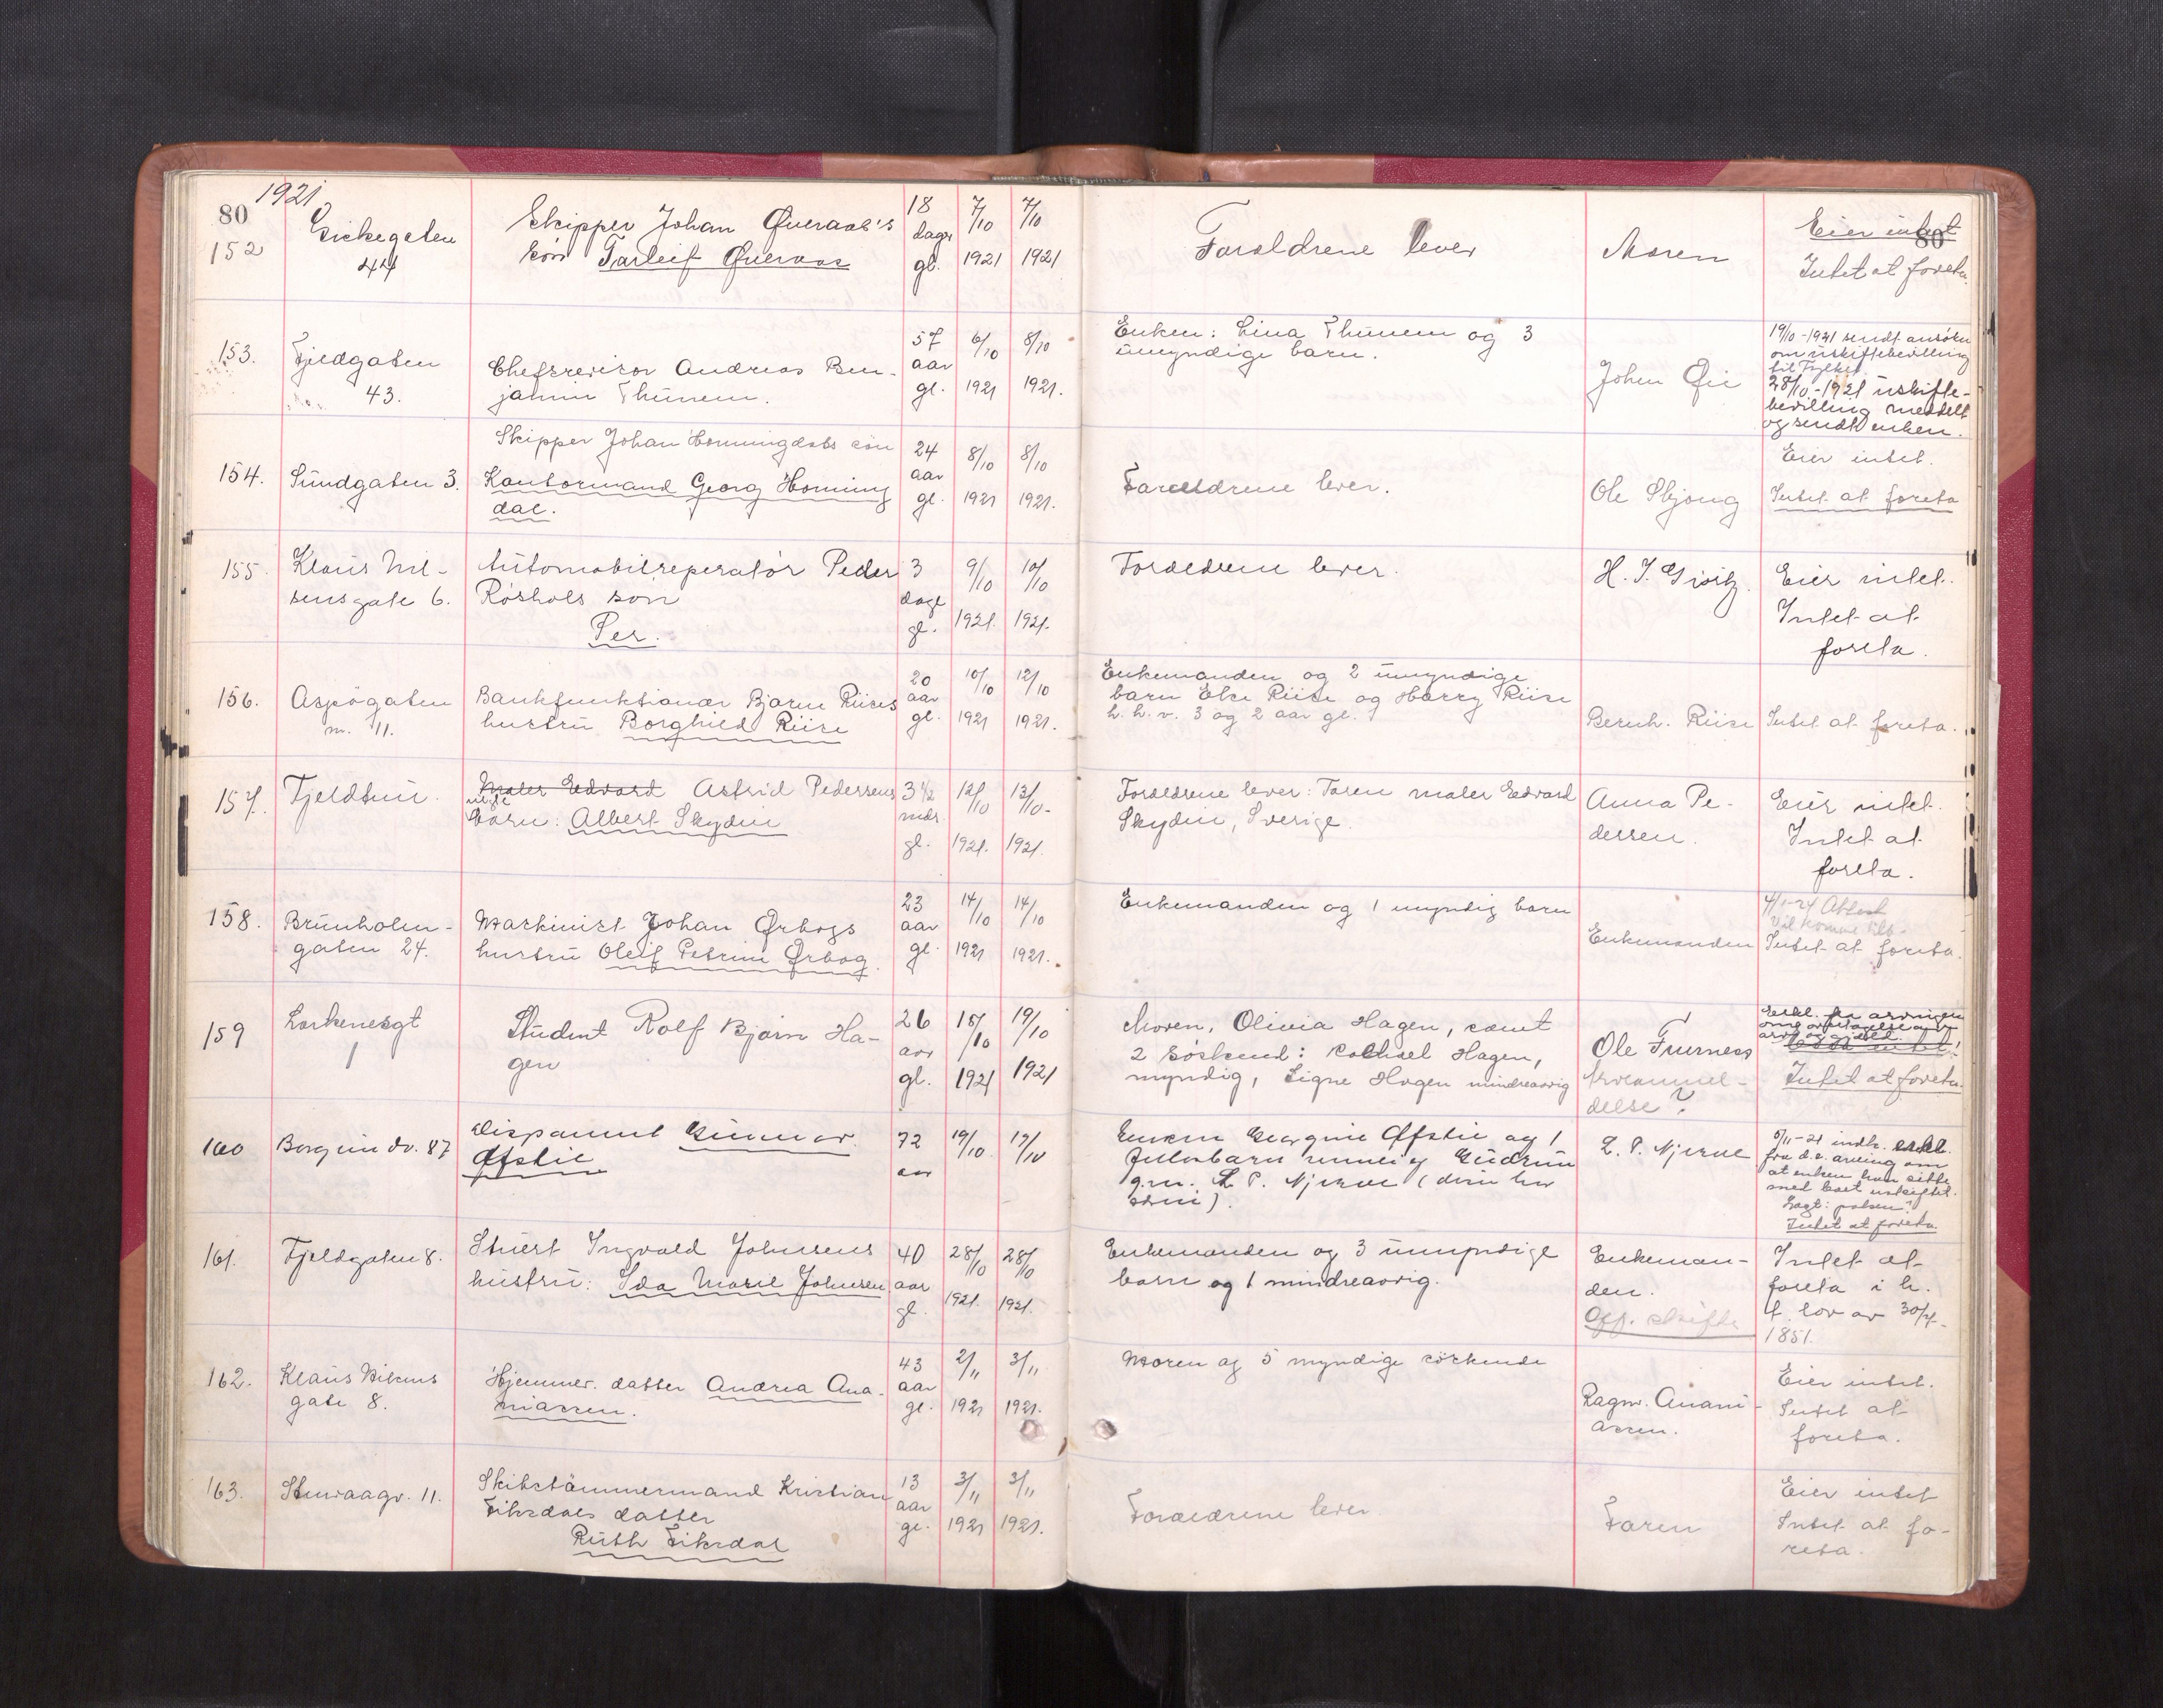 1921
80
152
Gickegaten
44
Skipper Johan Øveraas's
søn Tarleif Øveraas
18
dager
gl.
7/10
1921
7/10
1921
Foreldrene lever
Moren
Eier intet
80
Intet at foreta.
153.
Fjeldgaten
43.
Chefsrevisor Andreas Ben-
jamin Thunem.
57
aar
gl.
6/10
1921
8/10
1921.
Enken: Lina Thunem og 3
umyndige barn.
Johan Øie
19/10-1921 sendt ansökn
om uskiftebevilling
til Fylket.
28/10-1921 uskifte-
bevilling meddelt
og sendt enken.
154.
Sundgaten 3.
Skipper Johan Horningdals søn
Kontormand Georg Horning
dal.
24
aar
gl.
8/10
1921
8/10
1921.
Foreldrene lever.
Ole Skjong
Eier intet.
Intet at foreta
155.
Klaus Nil-
sensgate 6.
Automobilreperatør Peder
Røshols søn
Per.
3
dage
gl.
9/10
1921.
10/10
1921.
Foreldrene lever.
H. J.
Eier intet.
Intet at
foreta.
156.
Aspøgaten
nr. 11.
Bankfunktionær Bjarne Riises
hustru Borghild Riise
20
aar
gl.
10/10
1921
12/10
1921.
Enkemanden og 2 umyndige
barn Else Riise og Harry Riise
h. h. v. 3 og 2 aar gl.
Bernh. Riise
Intet at foreta.
157.
Fjeldtun.
Maler Edvard Astrid Pedersens
uegte
barn: Albert Skydin
3 1/2
mdr.
gl.
12/10
1921.
13/10-
1921.
Foreldrene lever: Faren maler Edvard
Skydin, Sverige.
Anna Pe-
dersen.
Eier intet.
Intet at
foreta.
158.
Brunholm-
gaten 24.
Maskinist Johan Ørbogs
hustru Oleif Petrine Ørbog.
23
aar
gl.
14/10
1921
14/10
1921.
Enkemanden og 1 umyndig barn
Enkemanden
4/1-24 Attest
Vil komme tilb-
Intet at foreta.
159
Lorkenesgt
1
Student Rolf Bjørn Ha-
gen
26
aar
gl.
18/10
1921
19/10
1921
Moren, Olivia Hagen, samt
2 søskend: Hagen,
myndig, Signe Hagen mindreaarig
Ole Furness
Arveanmel-
delse?
Erkl. fra arvingen
om overtagelse av
arv og gjeld.
Intet at foreta.
160
Borgundv. 87
Disponent Gunnar
Øfstie
72
aar
19/10
19/10
Enken Georgine Øfstie og 1
fullobarn myndig Gudrun
g.m. L. P. Njerve
L. P. Njerve
5/11-21 indk. erkl.
fra d.e. arving om
at enken kan sitte
med boet uskiftet.
Intet at foreta.
161.
Fjeldgaten 8.
Stuert Ingvald Johnsens
hustru: Ida Marie Johnsen
40
aar
gl.
28/10
1921.
28/10
1921.
Enkemanden og 3 umyndige
barn og 1 mindreaarig.
Enkeman-
den.
Off. skifte
Intet at
foreta i h.
t. lov av 30/7-
1851.
162.
Klaus Nilsens
gate 8.
Hjemmev. datter Andrea Ana-
niassen.
43
aar
gl.
2/11
1921
3/11
1921.
Moren og 5 myndige søskende
Ragnv. Anani-
assen.
Eier intet.
Intet at
foreta.
163.
Storvaagv. 11.
Skibstømmermand Kristian
Fiksdals datter
Ruth Fiksdal
13
aar
gl.
3/11
1921
3/11
1921.
Foreldrene lever.
Faren
Eier intet
Intet at fo-
reta.